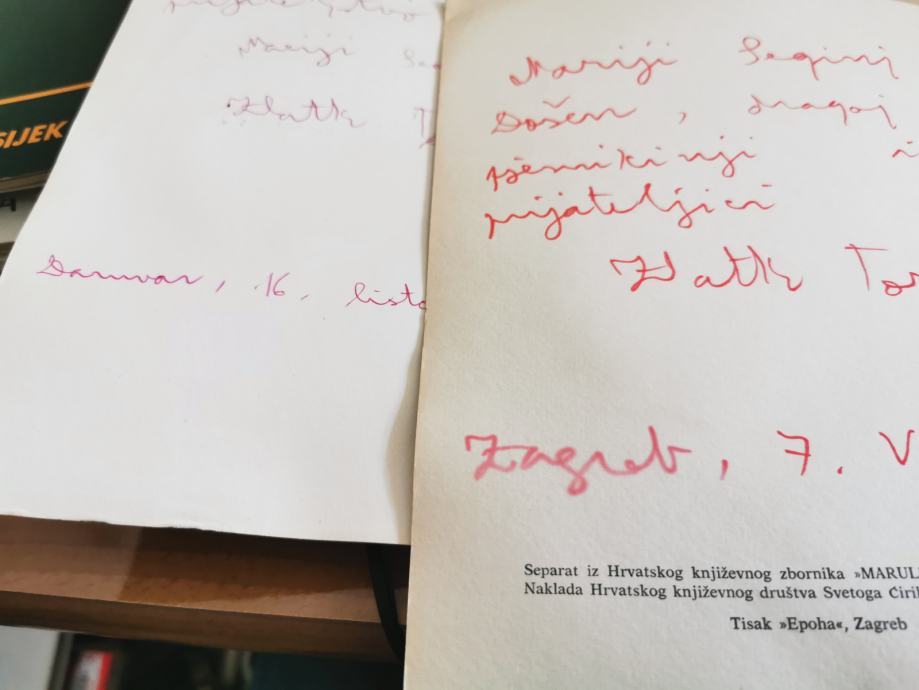 SIJEK
Mariji Se
Zlatk T
Daruvar, 16. listo
Mariji Seginj
Došen, dragoj
pjesnikinji i
prijateljici
Zlatk Tom
Zagreb, 7. V
Separat iz Hrvatskog književnog zbornika »MARUL
Naklada Hrvatskog književnog društva Svetoga Ćiril
Tisak »Epoha«, Zagreb